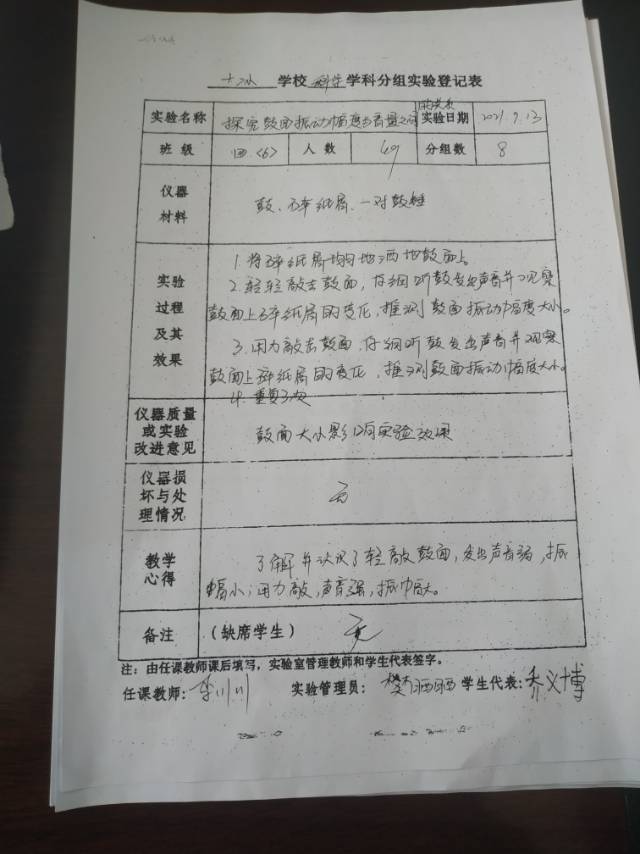 学校 科学 学科分组实验登记表
的关系
实验名称 探究鼓面振动幅度与音量之间 实验日期 2021.9.13
班级 四〈6〉 人数 49 分组数 8
仪器
材料
鼓、碎纸屑、一对鼓锤
实验
过程
及其
效果
1.将碎纸屑均匀地洒地鼓面上。
2.轻轻敲击鼓面,仔细听鼓发出声音并观察
鼓面上碎纸屑的变化,推测鼓面振动幅度大小。
3.用力敲击鼓面,仔细听鼓发出声音并观察
鼓面上碎纸屑的变化,推测鼓面振动幅度大小。
4.重复3次
仪器质量
或实验
改进意见
鼓面大小影响实验效果
仪器损
坏与处
理情况
否
教学
心得
了解并认识了轻敲鼓面,发出声音弱,振
幅小;用力敲,声音强,振幅大。
备注 (缺席学生) 无
注:由任课教师课后填写,实验室管理教师和学生代表签字。
任课教师: 李川川 实验管理员: 樊晒晒 学生代表: 乔义博